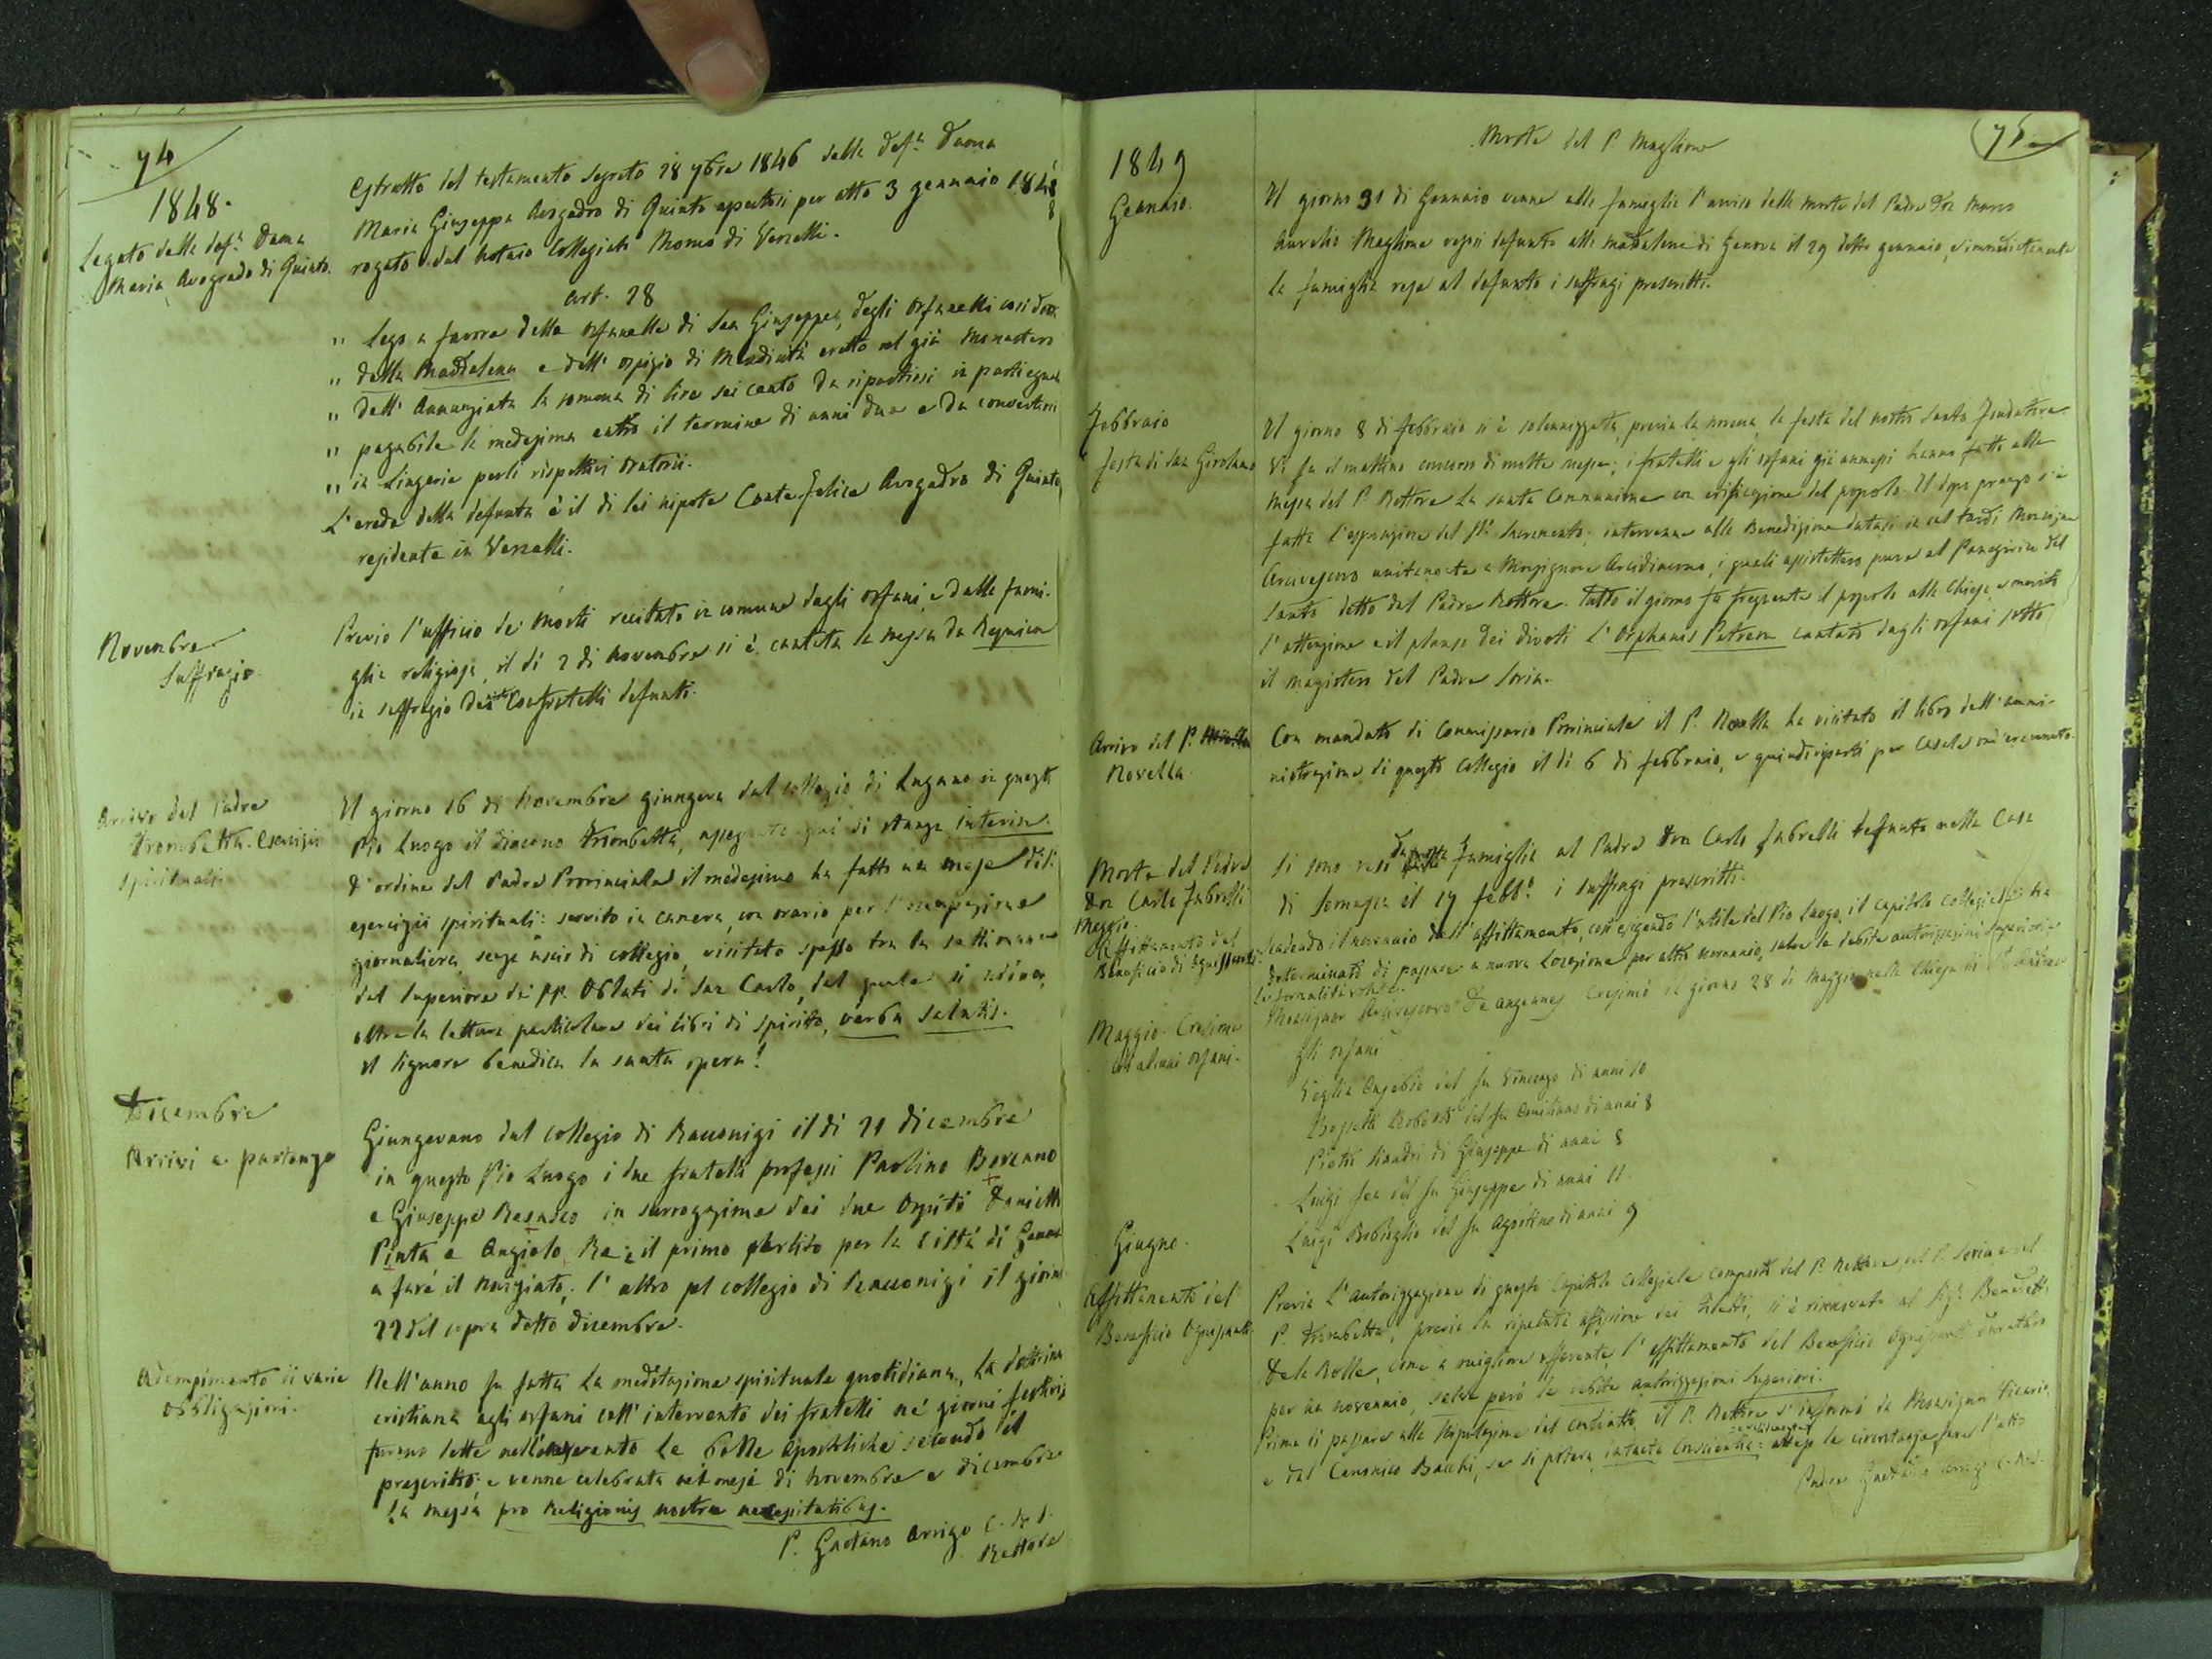 74
1848.
Legato della def.ᵃ Dama
Maria Avogrado di Quinto.
Estratto del testamento segreto 28 9bre 1846 della def.ᵃ Dama
Maria Giuseppa Avogadro di Quinto apertosi per atto 3 gennaio 1848
rogato dal Notaio Collegiato Momo di Vercelli.
art. 28
" Lego a favore delle orfanelle di San Giuseppe, degli Orfanelli così detti
" della Maddalena e dell' ospizio di Mendicità eretto nel già Monastero
" dell' Annunziata la somma di lire sei cento da ripartirsi in parti eguali
" pagabile la medesima entro il termine di anni due e da convertirsi
" in Lingerie perli rispettivi Oratorii.
L'erede della defunta è il di lei nipote Conte Felice Avogadro di Quinto
residente in Vercelli.
Novembre
Suffragio.
Previo l'ufficio dei Morti recitato in comune dagli orfani, e dalla fami-
glia religiosa, il dì 2 di Novembre si è cantata la messa da Requiem
in suffragio dei Confratelli defunti.
Arrivo del Padre
Trombetta. Esercizii
spirituali.
Il giorno 16 di Novembre giungeva dal collegio di Lugano in questo
Pio Luogo il Diacono Trombetta, di stanza interim.
D'ordine del Padre Provinciale il medesimo ha fatto un mese di
esercizii spirituali: servito in camera, con orario per l'occupazione
giornaliera, senza uscir di collegio, visitato spesso tra la settimana
dal Superiore dei PP. Oblati di San Carlo, dal quale si udiva,
oltre la lettura particolare dei libri di spirito, verba salutis.
Il Signore benedica la santa opera!
Dicembre
Arrivi e partenze
Giungevano dal collegio di Racconigi il dì 21 dicembre
in questo Pio Luogo i due fratelli professi Paolino Boreano
e Giuseppe Besasco in surrogazione dei due Ospiti Danielli
Pinta e Angiolo Re; il primo partito per la Città di Genova
a fare il noviziato; l'altro pel collegio di Racconigi il giorno
22 del sopra detto dicembre.
Adempimento di varie
obbligazioni.
Nell'anno fu fatta la meditazione spirituale quotidiana, la dottrina
cristiana agli orfani coll'intervento dei fratelli nè giorni festivi;
furono lette nell'Avvento le bolle Apostoliche secondo il
prescritto; e venne celebrata nel mese di Novembre e dicembre
la messa pro Religionis nostrae necessitatibus.
P. Gaetano Arrigo C. R. S.
Rettore
75
1849
Gennaio.
Morte del P. Maglione
Il giorno 31 di Gennaio venne alla famiglia l'avviso della morte del Padre Don Marco
Aurelio Maglione resosi defunto alla Maddalena di Genova il 29 detto gennaio, e immediatamente
la famiglia rese al defunto i suffragi prescritti.
Febbraio
Festa di San Girolamo
Il giorno 8 di febbraio si è solennizzata, previa la novena, la festa del nostro Santo Fondatore.
Vi fu il mattino concorso di molte messe; i fratelli e gli orfani già ammessi hanno fatto alla
messa del P. Rettore la santa Communione con edificazione del popolo. Il dopo pranzo s'è
fatta l'esposizione del SS. Sacramento; intervenne alla Benedizione datasi in sul tardi Monsignor
Arcivescovo unitamente a Monsignore Arcidiacono, i quali assistettero pure al Panegirico del
Santo detto dal Padre Rettore. Tutto il giorno fu frequente il popolo alla Chiesa, e meritò
l'attenzione e il plauso dei divoti l'Orphanis Patrem cantato dagli orfani sotto
il magistero del Padre Soria.
Arrivo del P.
Novella.
Con mandato di Commissario Provinciale il P. Novella ha visitato il libro dell'ammi-
nistrazione di questo Collegio il dì 6 di febbraio, e quindi ripartì per Casale ond'era venuto.
Morte del Padre
Don Carlo Fabrelli
Si sono resi dalla Famiglia al Padre Don Carlo Fabrelli defunto nella Casa
di Somasca il 17 febb.° i suffragi prescritti.
Maggio.
Affittamento del
Beneficio di Ognissanti.
Scadendo il novennio dell'affittamento, così esigendo l'utile del Pio Luogo, il Capitolo Collegiale ha
determinato di passare a nuova Locazione per altro novennio, salve le debite autorizzazioni superiori e
le formalità volute.
Maggio. Cresima
ad alcuni orfani.
Monsignor Arcivescovo De Angennes Cresimò il giorno 28 di Maggio nella Chiesa di
gli orfani
Veglia Eusebio del fu Vincenzo di anni 10
Bossetti Roberto del fu Emiliano di anni 8
Pietro Sinadri di Giuseppe di anni 8
Luigi del fu Giuseppe di anni 11.
Luigi Robiglio del fu Agostino di anni 9
Giugno.
Affittamento del
Beneficio Ognissanti.
Previa l'autorizzazione di questo Capitolo Collegiale composto del P. Rettore, del P. Soria e del
P. Trombetta, previa la ripetuta affissione dei tiletti, si è rinnovato al Sig.r Benedetto
Dela Rolle, come a migliore offerente, l'affittamento del Beneficio Ognissanti
per un novennio, salve però le debite autorizzazioni Superiori.
Prima di passare alla stipulazione del contratto, il P. Rettore s'informò da Monsignor Vicario,
e dal Canonico Bacchi, se si poteva, intacta Conscientia: attese le circostanze, fare l'atto
Padre Gaetano Arrigo C. R. S.